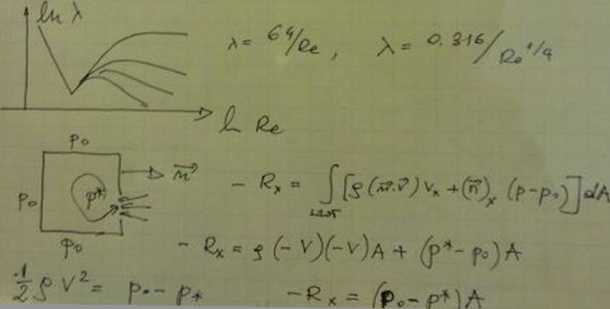 ln λ
λ = 64/Re , λ = 0.316/Re^1/4
ln Re
p₀
p₀ p* n⃗
p₀
- Rₓ = ∫ [ρ(n⃗·v⃗) vₓ + (n⃗)ₓ (p-p₀)] dA
- Rₓ = ρ (-V)(-V)A + (p* - p₀) A
1/2 ρ V² = p₀ - p*
-Rₓ = (p₀ - p*) A